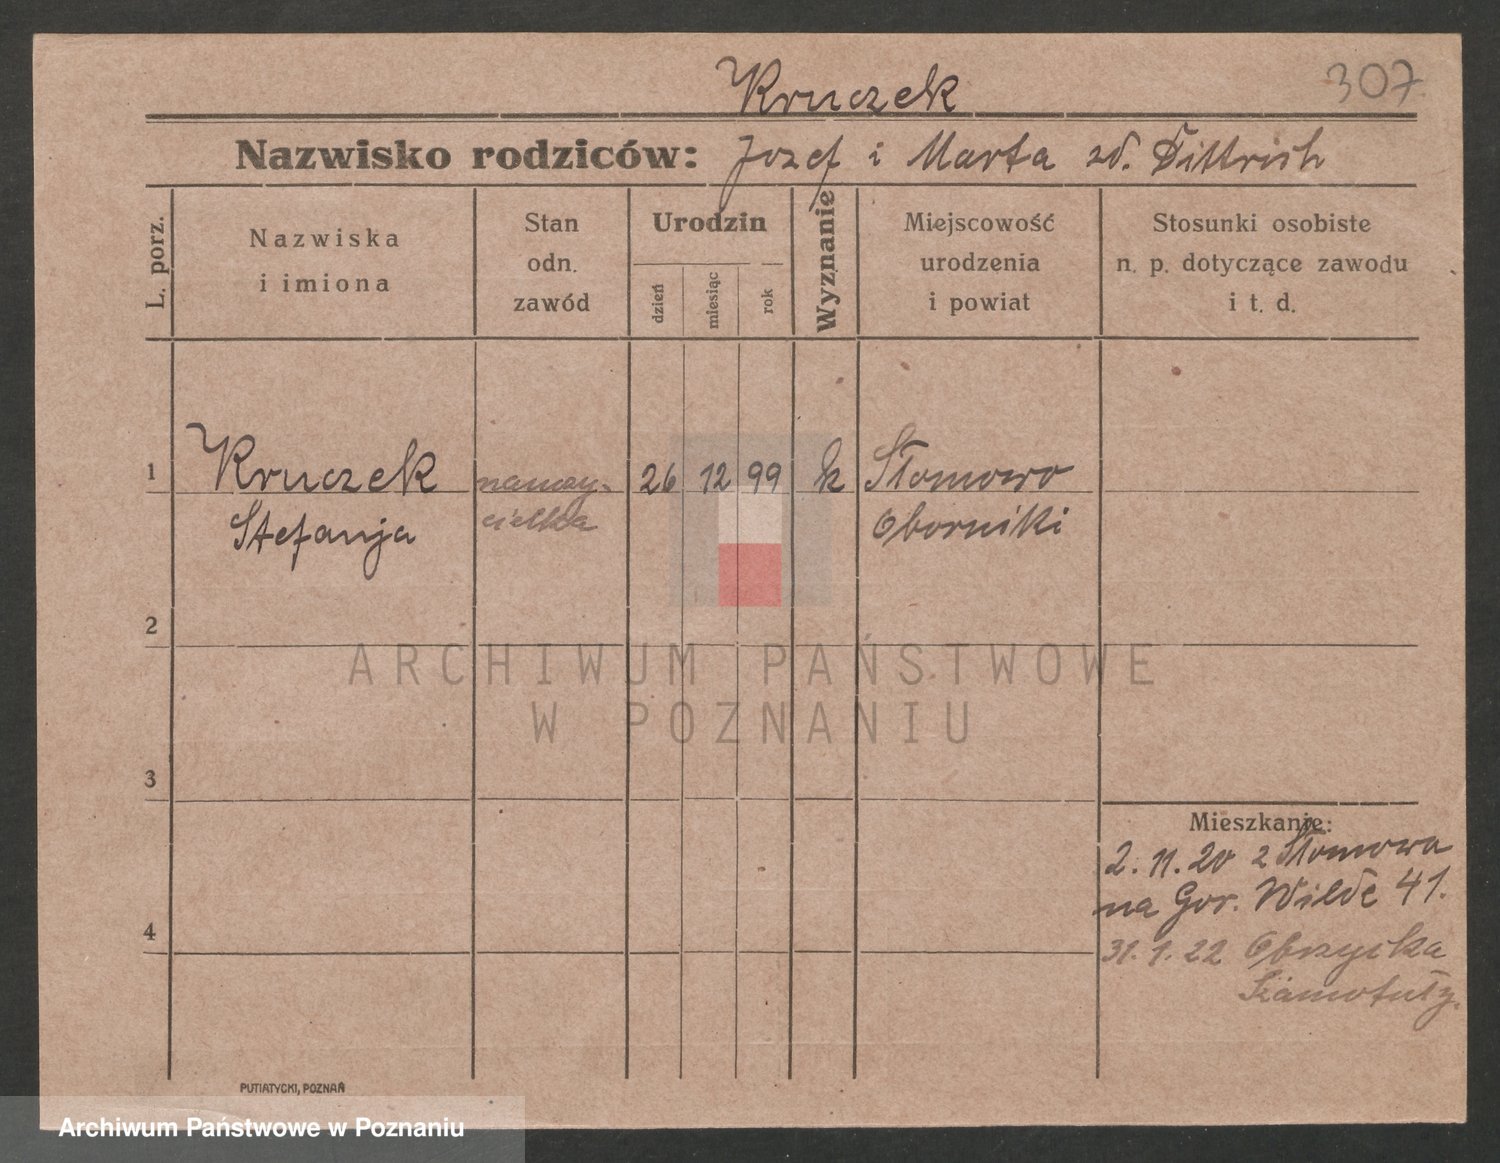 307
Kruczek
Nazwisko rodziców: Jozef i Marta zd. Dittrich
L. porz.
Nazwiska
i imiona
Stan
odn.
zawód
Urodzin
dzień
miesiąc
rok
Wyznanie
Miejscowość
urodzenia
i powiat
Stosunki osobiste
n. p. dotyczące zawodu
i t. d.
1
Kruczek
Stefanja
nauczy-
cielka
26 12 99
k
Słomowo
Oborniki
2
3
4
Mieszkanie:
2. 11. 20 z Słomowa
na Gor. Wilde 41.
31. 1. 22 Obrzycka
Szamotuły.
PUTIATYCKI, POZNAŃ
ARCHIWUM PAŃSTWOWE
W POZNANIU
Archiwum Państwowe w Poznaniu